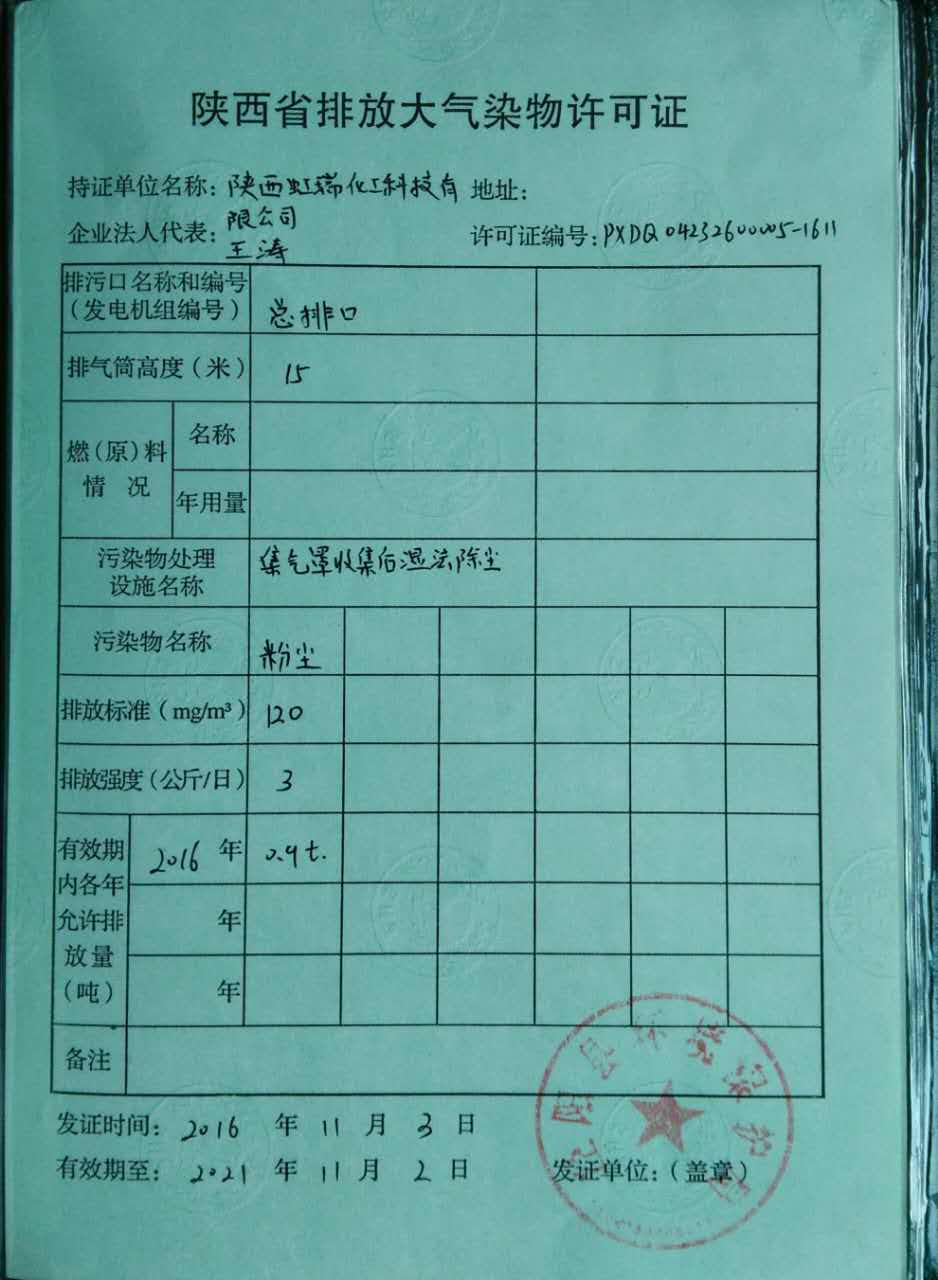 陕西省排放大气染物许可证
持证单位名称：陕西虹瑞化工科技有 地址：
限公司
企业法人代表：王涛 许可证编号：PXDQ04232600005-1611
排污口名称和编号
（发电机组编号） 总排口
排气筒高度（米） 15
燃（原）料
情 况
名称
年用量
污染物处理
设施名称 集气罩收集后湿法除尘
污染物名称 粉尘
排放标准（mg/m³） 120
排放强度（公斤/日） 3
有效期
内各年
允许排
放量
（吨）
2016 年 0.9t.
年
年
备注
发证时间： 2016 年 11 月 3 日
有效期至： 2021 年 11 月 2 日 发证单位：（盖章）
县环境保护局